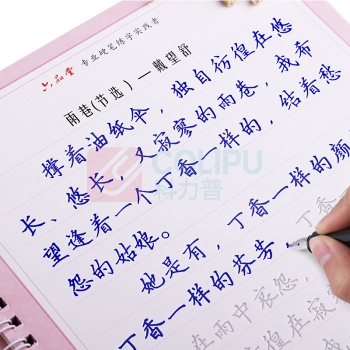 六品堂 专业硬笔练字实践者
雨巷(节选)—戴望舒
撑着油纸伞，独自彷徨在悠
长、悠长，又寂寥的雨巷，我希
望逢着一个丁香一样的，结着愁
怨的姑娘。
她是有，丁香一样的颜
丁香一样的芬芳，
在雨中哀怨，
徨在寂寥
COLIPU
科力普